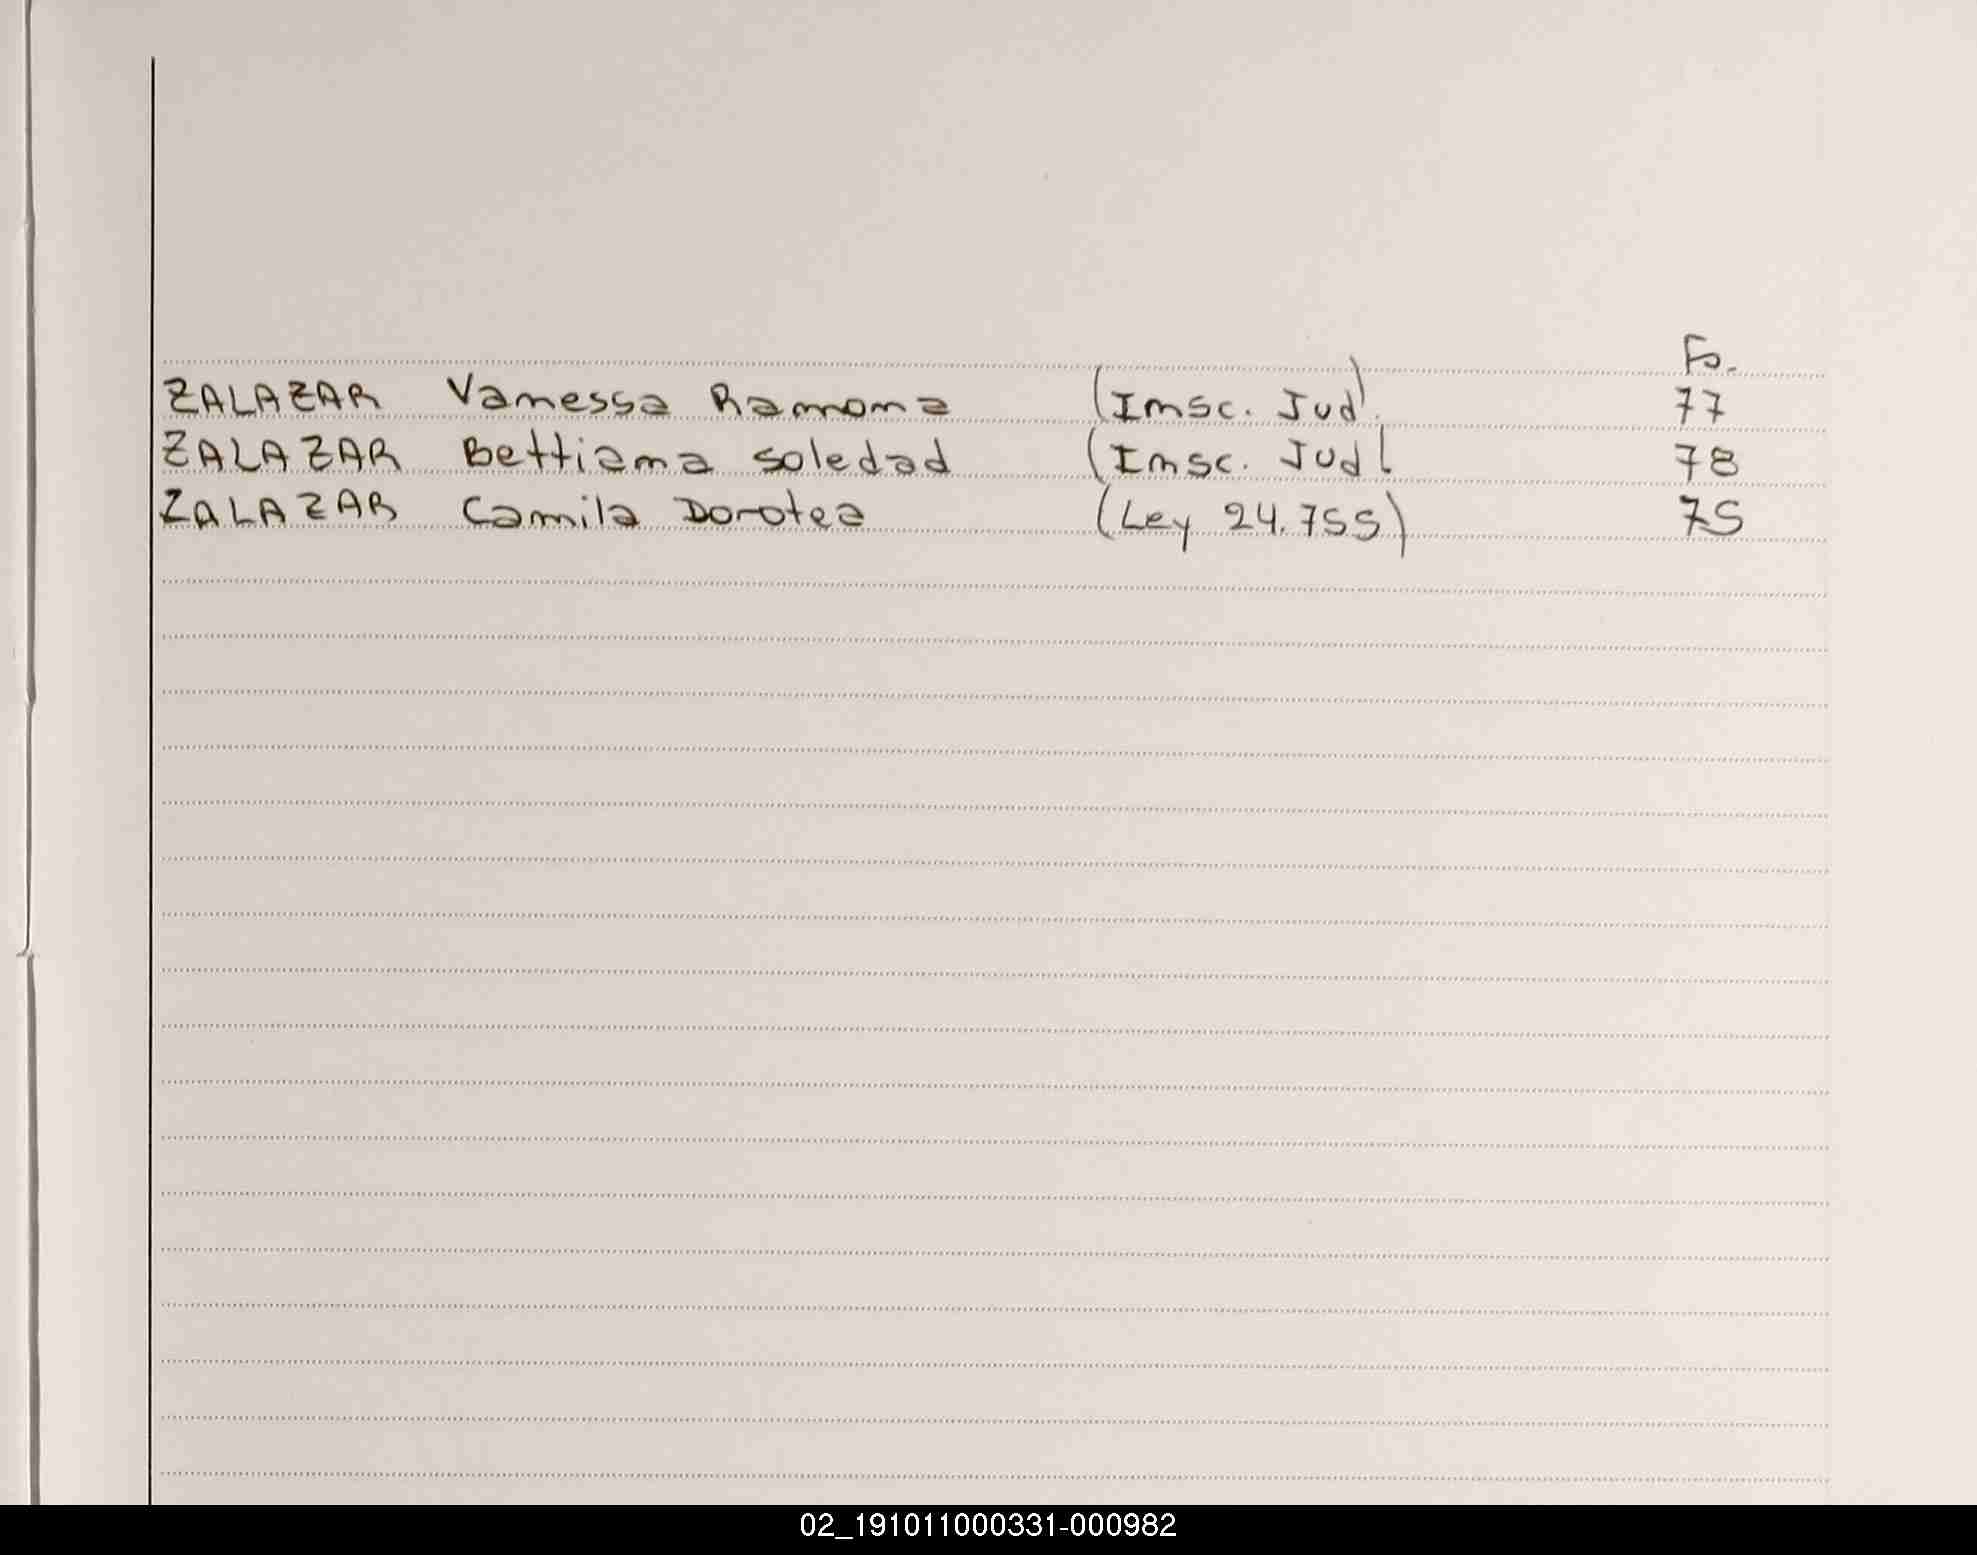 Fo.
ZALAZAR Vanessa Ramona (Insc. Jud). 77
ZALAZAR Bettiana Soledad (Insc. Jud) 78
ZALAZAR Camila Dorotea (Ley 24.755) 75
02_191011000331-000982